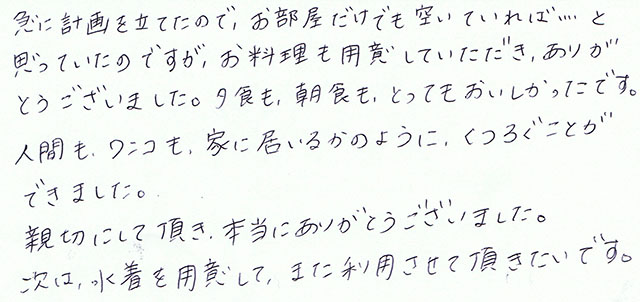 急に計画を立てたので、お部屋だけでも空いていれば…と
思っていたのですが、お料理も用意していただき、ありが
とうございました。夕食も、朝食も、とってもおいしかったです。
人間も、ワンコも、家に居いるかのように、くつろぐことが
できました。
親切にして頂き、本当にありがとうございました。
次は、水着を用意して、また利用させて頂きたいです。